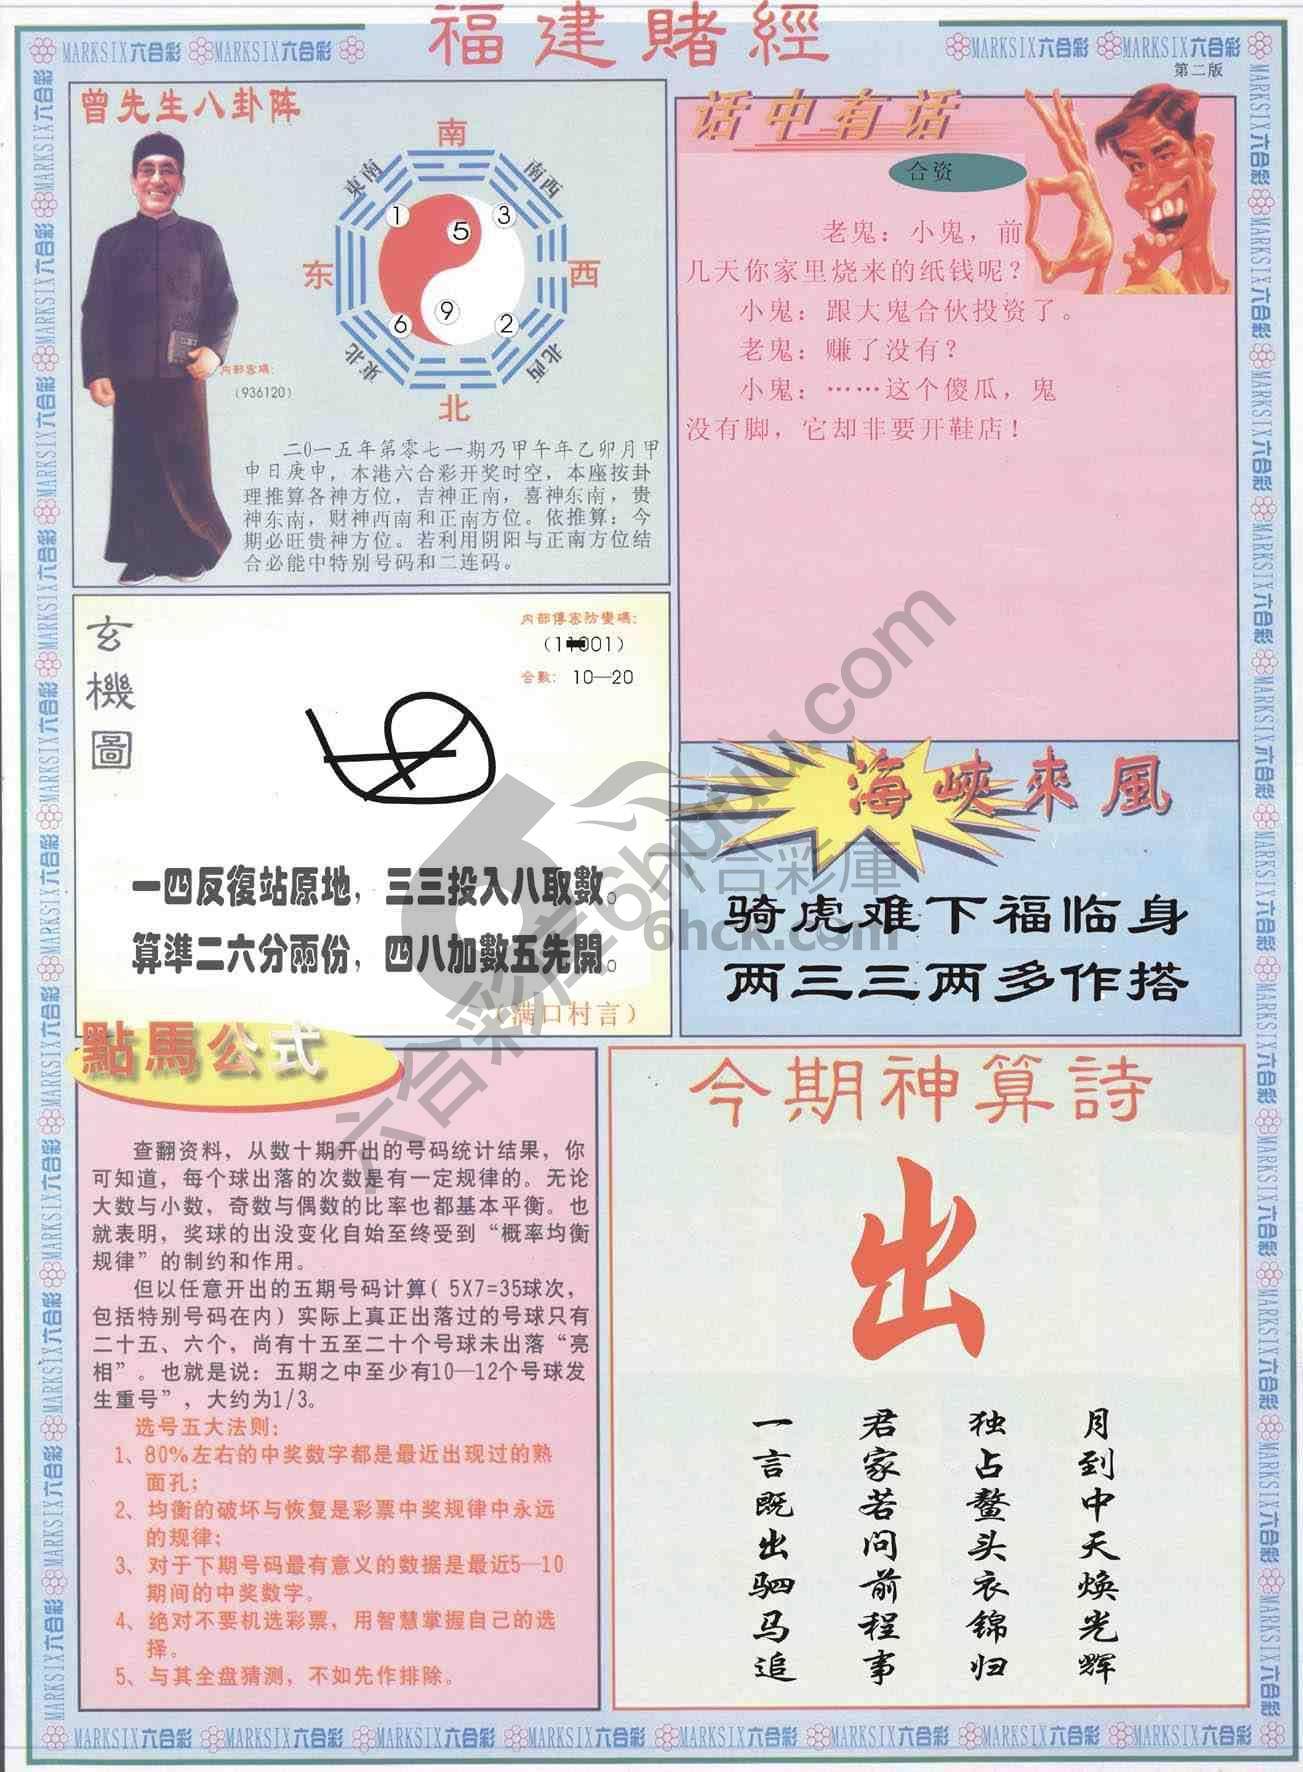 福建賭經
MARKSIX六合彩 MARKSIX六合彩
MARKSIX六合彩 MARKSIX六合彩
第二版
曾先生八卦阵
南
東南
南西
1
5
3
东
西
6
9
2
東北
北西
北
内部密碼：
（936120）
二0一五年第零七一期乃甲午年乙卯月甲
申日庚申，本港六合彩开奖时空，本座按卦
理推算各神方位，吉神正南，喜神东南，贵
神东南，财神西南和正南方位。依推算：今
期必旺贵神方位。若利用阴阳与正南方位结
合必能中特别号码和二连码。
话中有话
合资
老鬼：小鬼，前
几天你家里烧来的纸钱呢？
小鬼：跟大鬼合伙投资了。
老鬼：赚了没有？
小鬼：……这个傻瓜，鬼
没有脚，它却非要开鞋店！
玄機圖
内部傳密防變碼：
合數：10—20
一四反復站原地，三三投入八取數。
算準二六分兩份，四八加數五先開。
（满口村言）
海峽來風
骑虎难下福临身
两三三两多作搭
六合彩庫
6hck.com
點馬公式
查翻资料，从数十期开出的号码统计结果，你
可知道，每个球出落的次数是有一定规律的。无论
大数与小数，奇数与偶数的比率也都基本平衡。也
就表明，奖球的出没变化自始至终受到“概率均衡
规律”的制约和作用。
但以任意开出的五期号码计算（5X7=35球次，
包括特别号码在内）实际上真正出落过的号球只有
二十五、六个，尚有十五至二十个号球未出落“亮
相”。也就是说：五期之中至少有10—12个号球发
生重号”，大约为1/3。
选号五大法则：
1、80%左右的中奖数字都是最近出现过的熟
面孔；
2、均衡的破坏与恢复是彩票中奖规律中永远
的规律；
3、对于下期号码最有意义的数据是最近5—10
期间的中奖数字。
4、绝对不要机选彩票，用智慧掌握自己的选
择。
5、与其全盘猜测，不如先作排除。
今期神算詩
出
月到中天焕光辉
独占鳌头衣锦归
君家若问前程事
一言既出驷马追
MARKSIX六合彩 MARKSIX六合彩 MARKSIX六合彩 MARKSIX六合彩 MARKSIX六合彩 MARKSIX六合彩 MARKSIX六合彩 MARKSIX六合彩